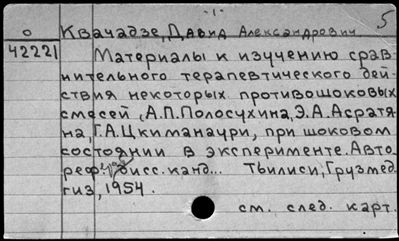 - 1 -
5
О Квачадзе, Давид Александрович
42221 Материалы к изучению срав-
нительного терапевтического дей-
ствия некоторых противошоковых
смесей, А.П.Полосухина, Э.А.Асратя
на, Г.А.Цкиманаури, при шоковом
состоянии в эксперименте. Авто
реф. дисс. канд... Тбилиси, Грузмед
гиз, 1954.
см. след. карт.